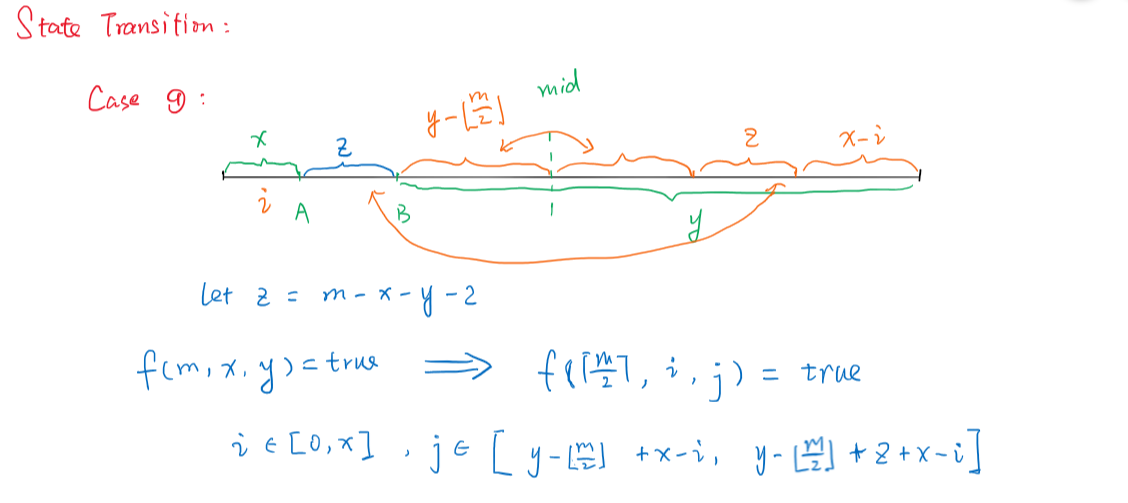 State Transition:
Case ①:
mid
y-⌊m/2⌋
x z z x-i
i A B y
let z = m-x-y-2
f(m, x, y) = true ⟹ f(⌈m/2⌉, i, j) = true
i ∈ [0, x] , j ∈ [ y-⌊m/2⌋ +x-i, y-⌊m/2⌋ +z+x-i]